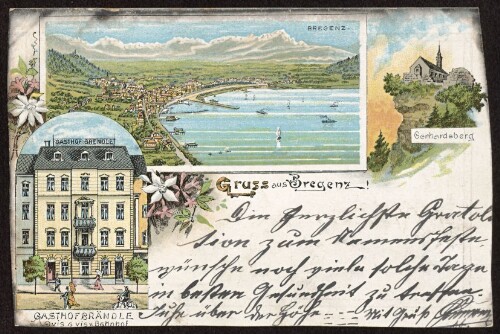 BREGENZ.
Gerhardsberg
GASTHOF BRENDLE
Gruss aus Bregenz!
GASTHOF BRÄNDLE
vis à vis v. Bahnhof
Die Herzlichste Gratola
tion zum Namensfeste
wünsche noch viele solche Tage
in besten Gesundheit zu treffen.
der Höhe Mit Gruß